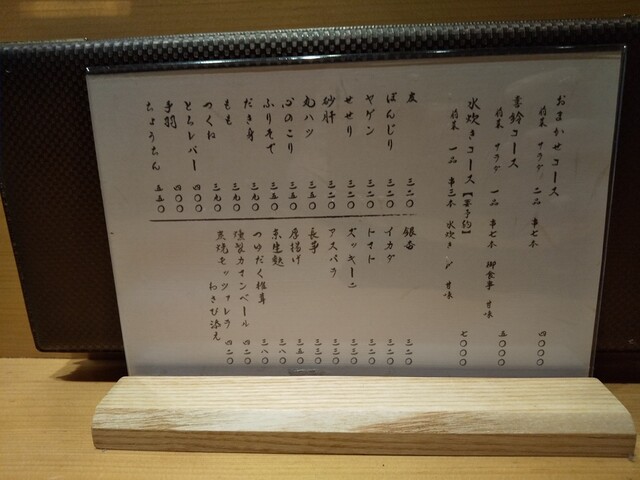 おまかせコース
前菜 サラダ 一品 串七本 四〇〇〇
喜鈴コース
前菜 サラダ 一品 串七本 御食事 甘味 五〇〇〇
水炊きコース【要予約】
前菜 一品 串三本 水炊き 〆 甘味 七〇〇〇
皮 三二〇
ぼんじり 三二〇
ヤゲン 三二〇
せせり 三二〇
砂肝 三二〇
丸ハツ 三五〇
心のこり 三五〇
ふりそで 三五〇
だき身 三五〇
もも 三九〇
つくね 三九〇
とろレバー 四〇〇
手羽 四〇〇
ちょうちん 五五〇
銀杏 三二〇
イカダ 三二〇
トマト 三二〇
ズッキーニ 三二〇
アスパラ 三三〇
長芋 三三〇
厚揚げ 三五〇
京生麩 三八〇
つゆだく椎茸 三八〇
燻製カマンベール 四二〇
炭焼モッツァレラ わさび添え 四二〇